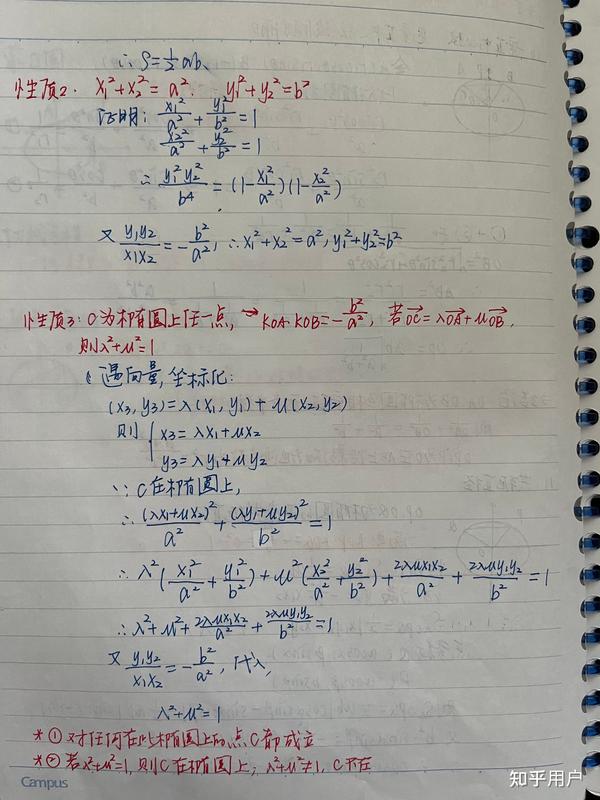 ∴ S=½ab.
性质2. x₁²+x₂²=a². y₁²+y₂²=b²
证明: x₁²/a²+y₁²/b²=1
x₂²/a²+y₂²/b²=1
∴ y₁²y₂²/b⁴=(1-x₁²/a²)(1-x₂²/a²)
又 y₁y₂/x₁x₂=-b²/a², ∴x₁²+x₂²=a², y₁²+y₂²=b²
性质3: C为椭圆上任一点, → KOA·KOB=-b²/a², 若OC=λOA+μOB,
则λ²+μ²=1
遇向量,坐标化:
(x₃,y₃)=λ(x₁,y₁)+μ(x₂,y₂)
则 { x₃=λx₁+μx₂
y₃=λy₁+μy₂
∵ C在椭圆上,
∴ (λx₁+μx₂)²/a²+(λy₁+μy₂)²/b²=1
∴ λ²(x₁²/a²+y₁²/b²)+μ²(x₂²/a²+y₂²/b²)+2λμx₁x₂/a²+2λμy₁y₂/b²=1
∴λ²+μ²+2λμx₁x₂/a²+2λμy₁y₂/b²=1
又 y₁y₂/x₁x₂=-b²/a², 代入,
λ²+μ²=1
*① 对任何在此椭圆上的点C都成立
*② 若λ²+μ²=1,则C在椭圆上; λ²+μ²≠1, C不在
Campus
知乎用户